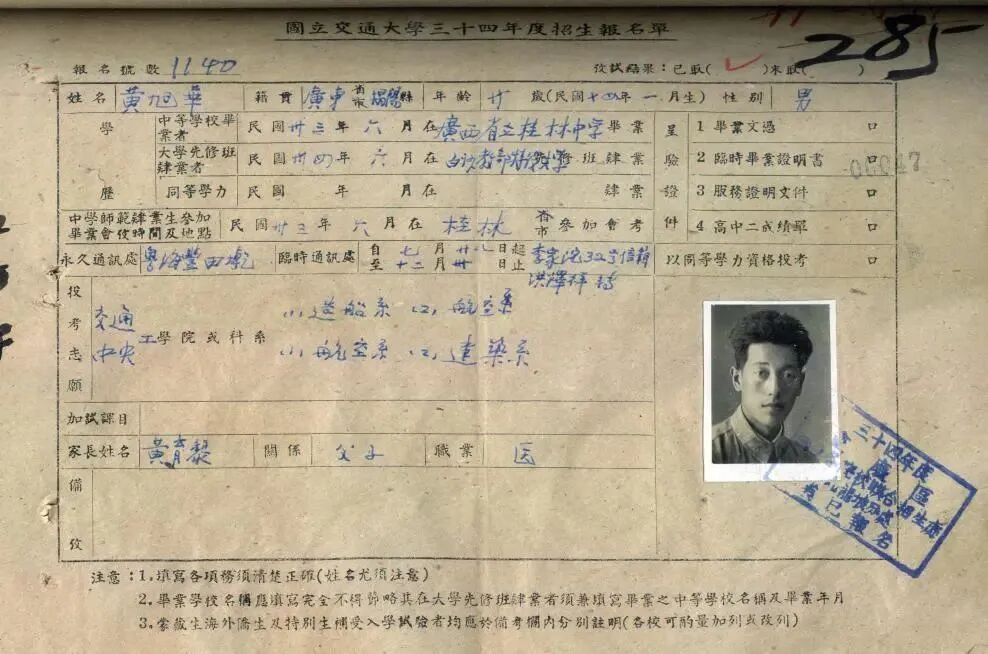 國立交通大學三十四年度招生報名單
285
報名號數 1140 攷試結果：已取( ✓ )未取( )
姓名 黃旭華 籍貫 廣東省市揭陽縣 年齡 廿 歲(民國十四年一月生) 性別 男
學歷
中等學校畢業者 民國卅三年六月在廣西省立桂林中學畢業
大學先修班肄業者 民國卅四年六月在白沙教部特設大學先修班肄業
同等學力 民國 年 月在 肄業
呈驗證件
1 畢業文憑 口
2 臨時畢業證明書 口
3 服務證明文件 口
4 高中二成績單 口
以同等學力資格投考 口
中學師範肄業生參加畢業會攷時間及地點 民國卅三年六月在桂林省市參加會考
永久通訊處 粵海豐田墘 臨時通訊處 自七月廿 日起至十二月卅 日止 李家沱32
投考志願
交通 工學院或科系 (1) 造船系 (2) 航空系
中央 (1) 航空系 (2) 建築系
加試課目
家長姓名 黃育黎 關係 父子 職業 医
備攷
三十四年度
區
招生處
已報名
注意：1.填寫各項務須清楚正確(姓名尤須注意)
2.畢業學校名稱應填寫完全不得節略其在大學先修班肄業者須兼填寫畢業之中等學校名稱及畢業年月
3.蒙藏生海外僑生及特別生補受入學試驗者均應於備考欄內分別註明(各校可酌量加列或改列)